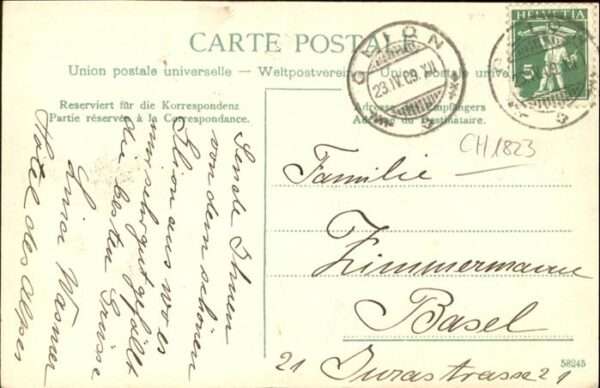 CARTE POSTALE
Union postale universelle — Weltpostverein — Union postale
Reserviert für die Korrespondenz
Partie réservée à la Correspondance.
Adresse des Empfängers
Adresse du Destinataire.
HELVETIA
5
GLION
23.IV.09.XII
CH1823
Sende Ihnen
von dem schönen
Glion aus wo es
mir sehr gut gefällt
die besten Grüsse
Lina Wasmer
Hotel des Alpes
Familie
Zimmermann
Basel
21 Jurastrasse 21
58245